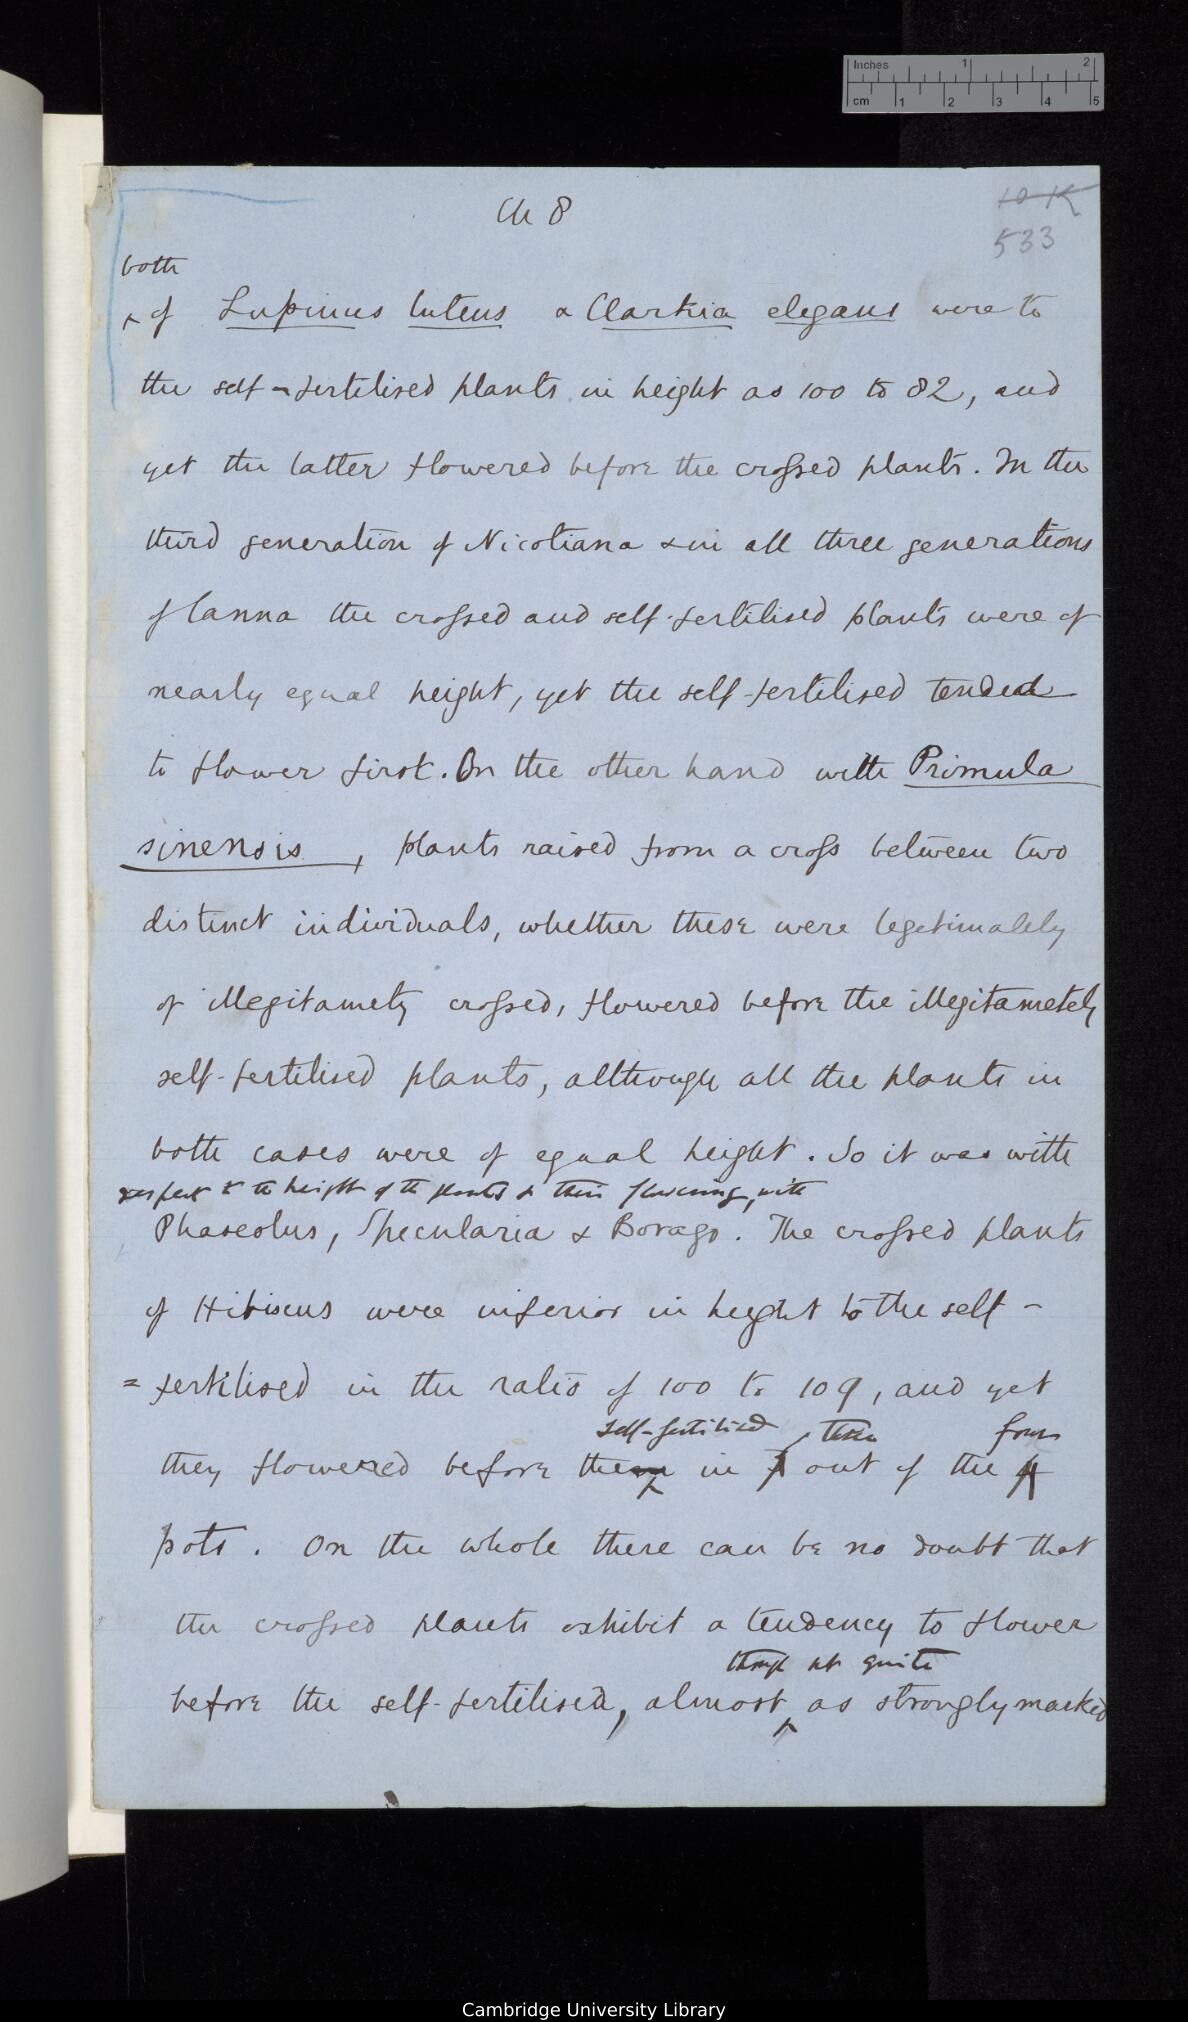 Inches 1 2
cm 1 2 3 4 5
Ch 8
10 K
533
both
of Lupinus luteus & Clarkia elegans were to
the self-fertilised plants in height as 100 to 82, and
yet the latter flowered before the crossed plants. In the
third generation of Nicotiana & in all three generations
of Canna the crossed and self-fertilised plants were of
nearly equal height, yet the self-fertilised tended
to flower first. On the other hand with Primula
sinensis, plants raised from a cross between two
distinct individuals, whether these were legitimately
or illegitamety crossed, flowered before the illegitametely
self-fertilised plants, although all the plants in
both cases were of equal height. So it was with
respect to the height of the plants & their flowering, with
Phaseolus, Specularia & Borago. The crossed plants
of Hibiscus were inferior in height to the self-
=fertilised in the ratio of 100 to 109, and yet
self-fertilised three four
they flowered before the in out of the 4
pots. On the whole there can be no doubt that
the crossed plants exhibit a tendency to flower
though not quite
before the self-fertilised, almost as strongly marked
Cambridge University Library